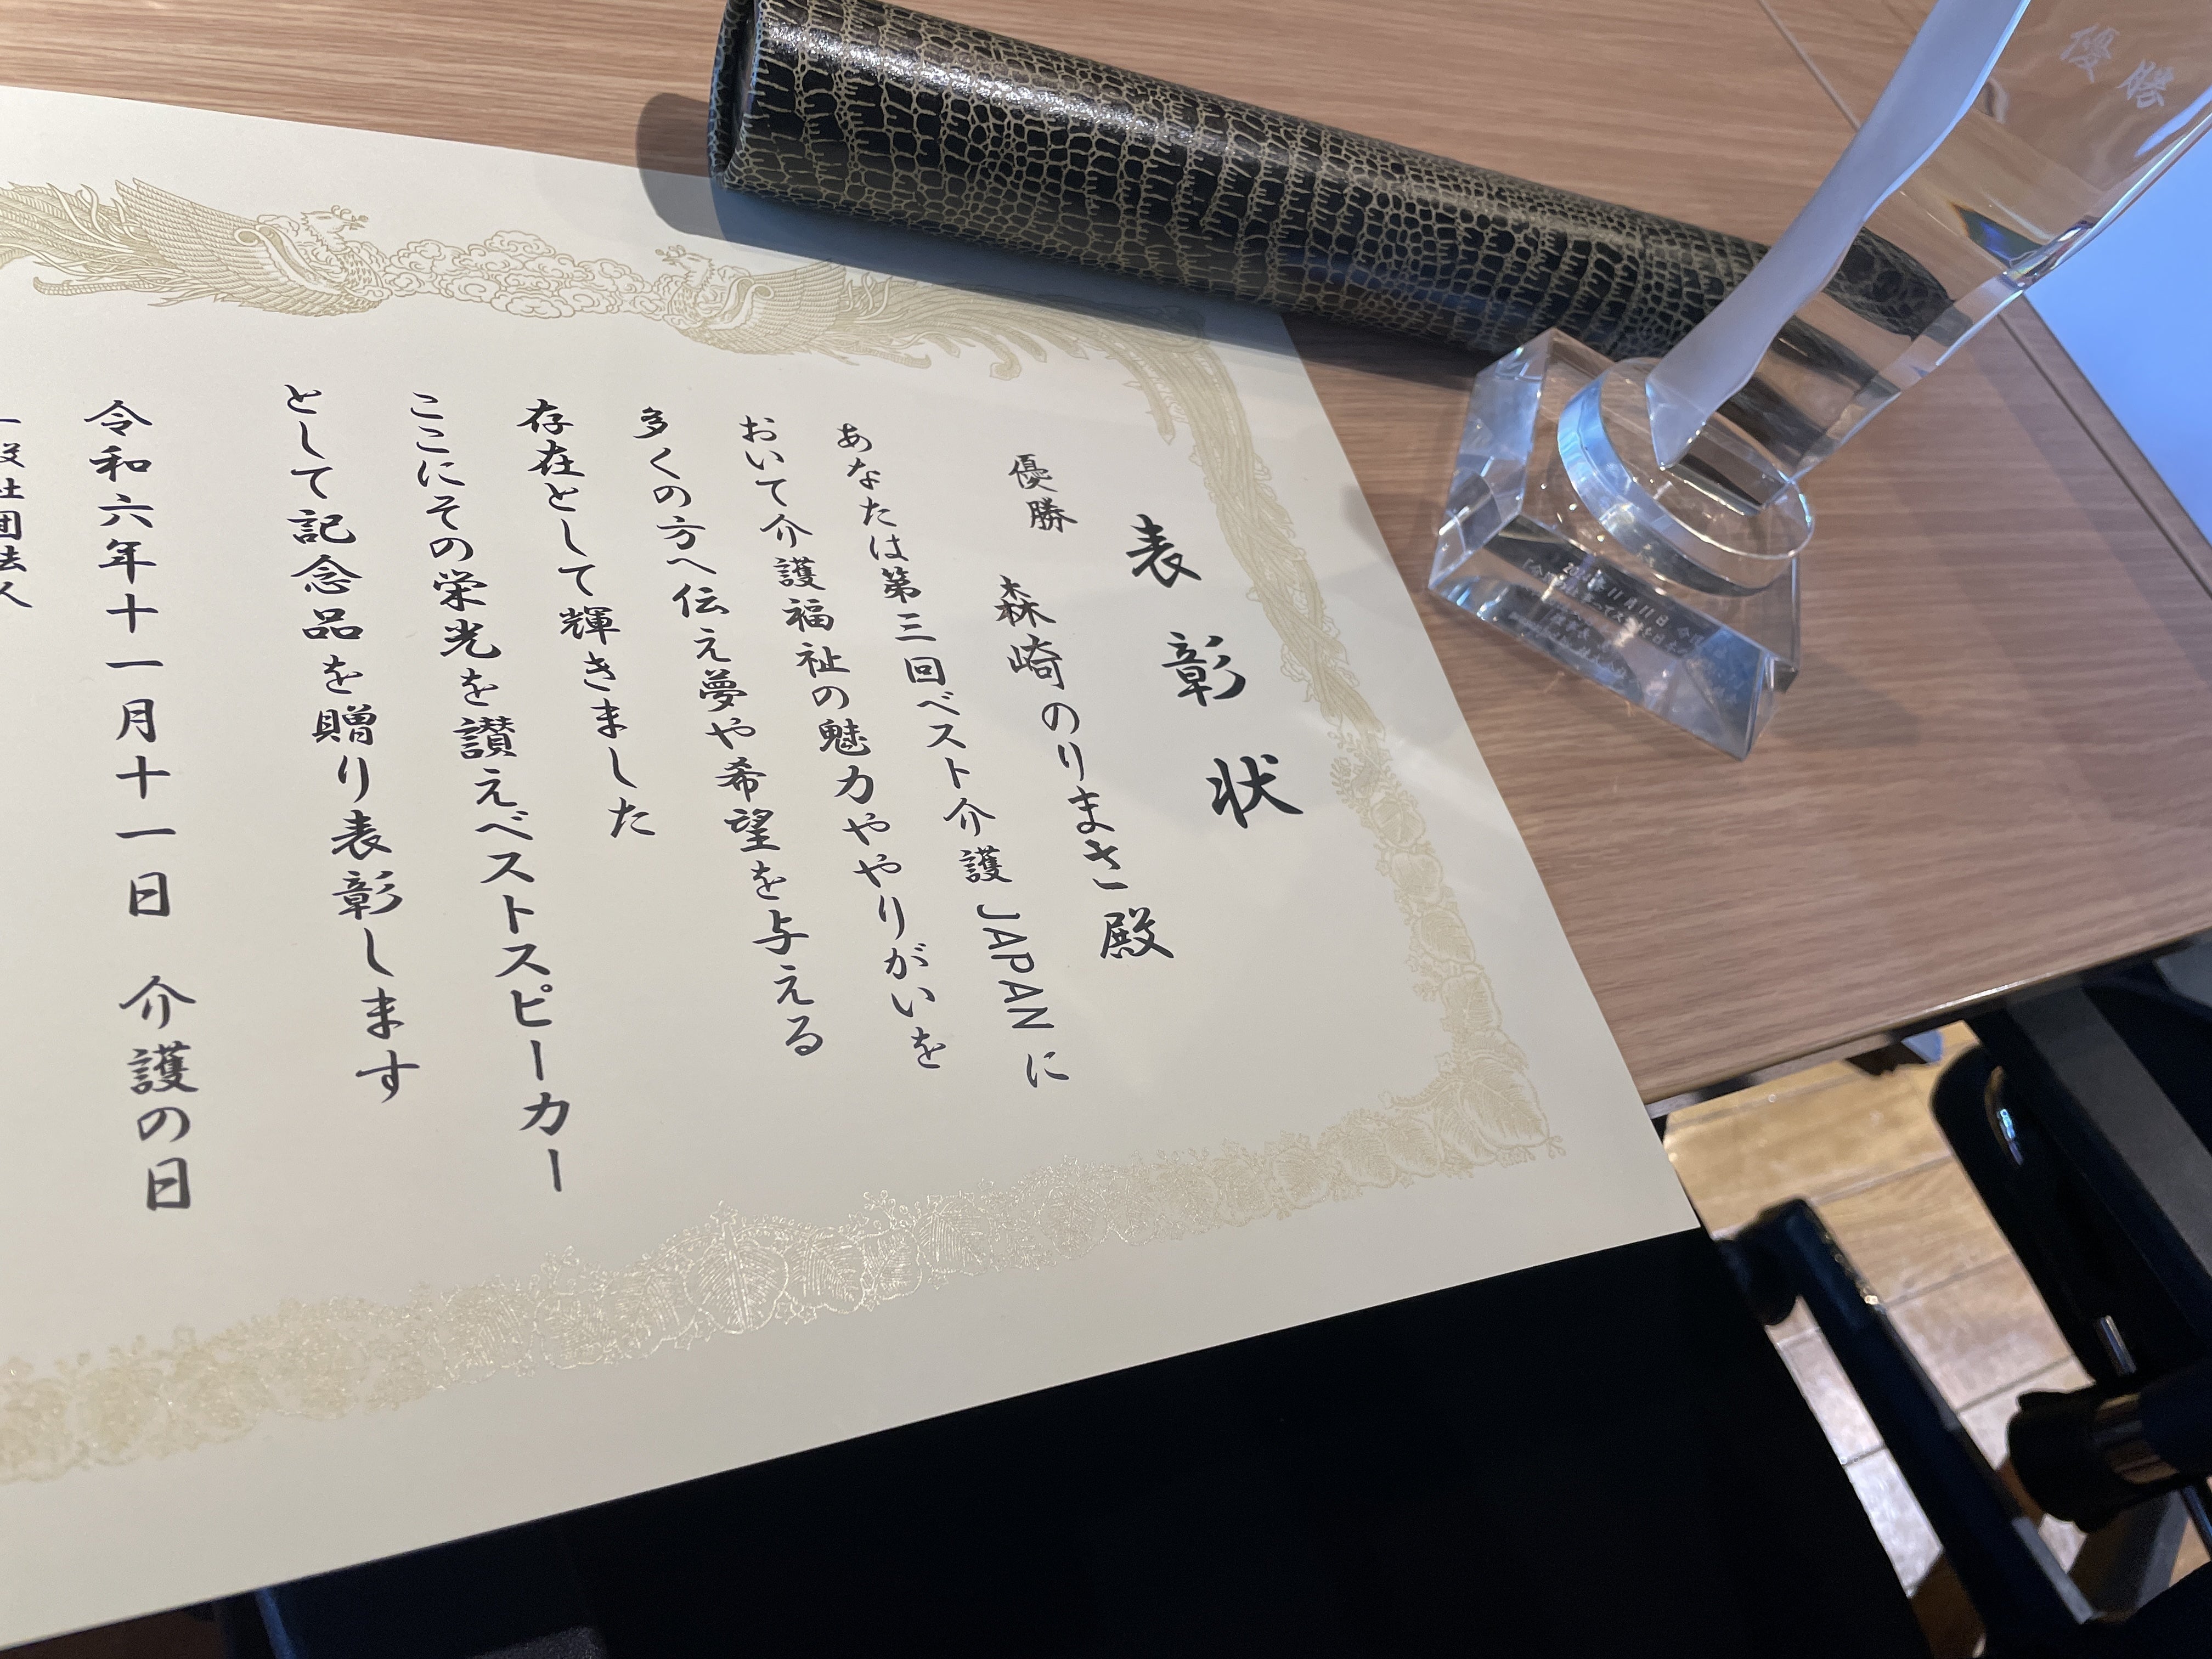 表彰状
優勝 森崎のりまさ殿
あなたは第三回ベスト介護JAPANに
おいて介護福祉の魅力ややりがいを
多くの方へ伝え夢や希望を与える
存在として輝きました
ここにその栄光を讃えベストスピーカー
として記念品を贈り表彰します
令和六年十一月十一日 介護の日
一般社団法人
優勝
11月11日